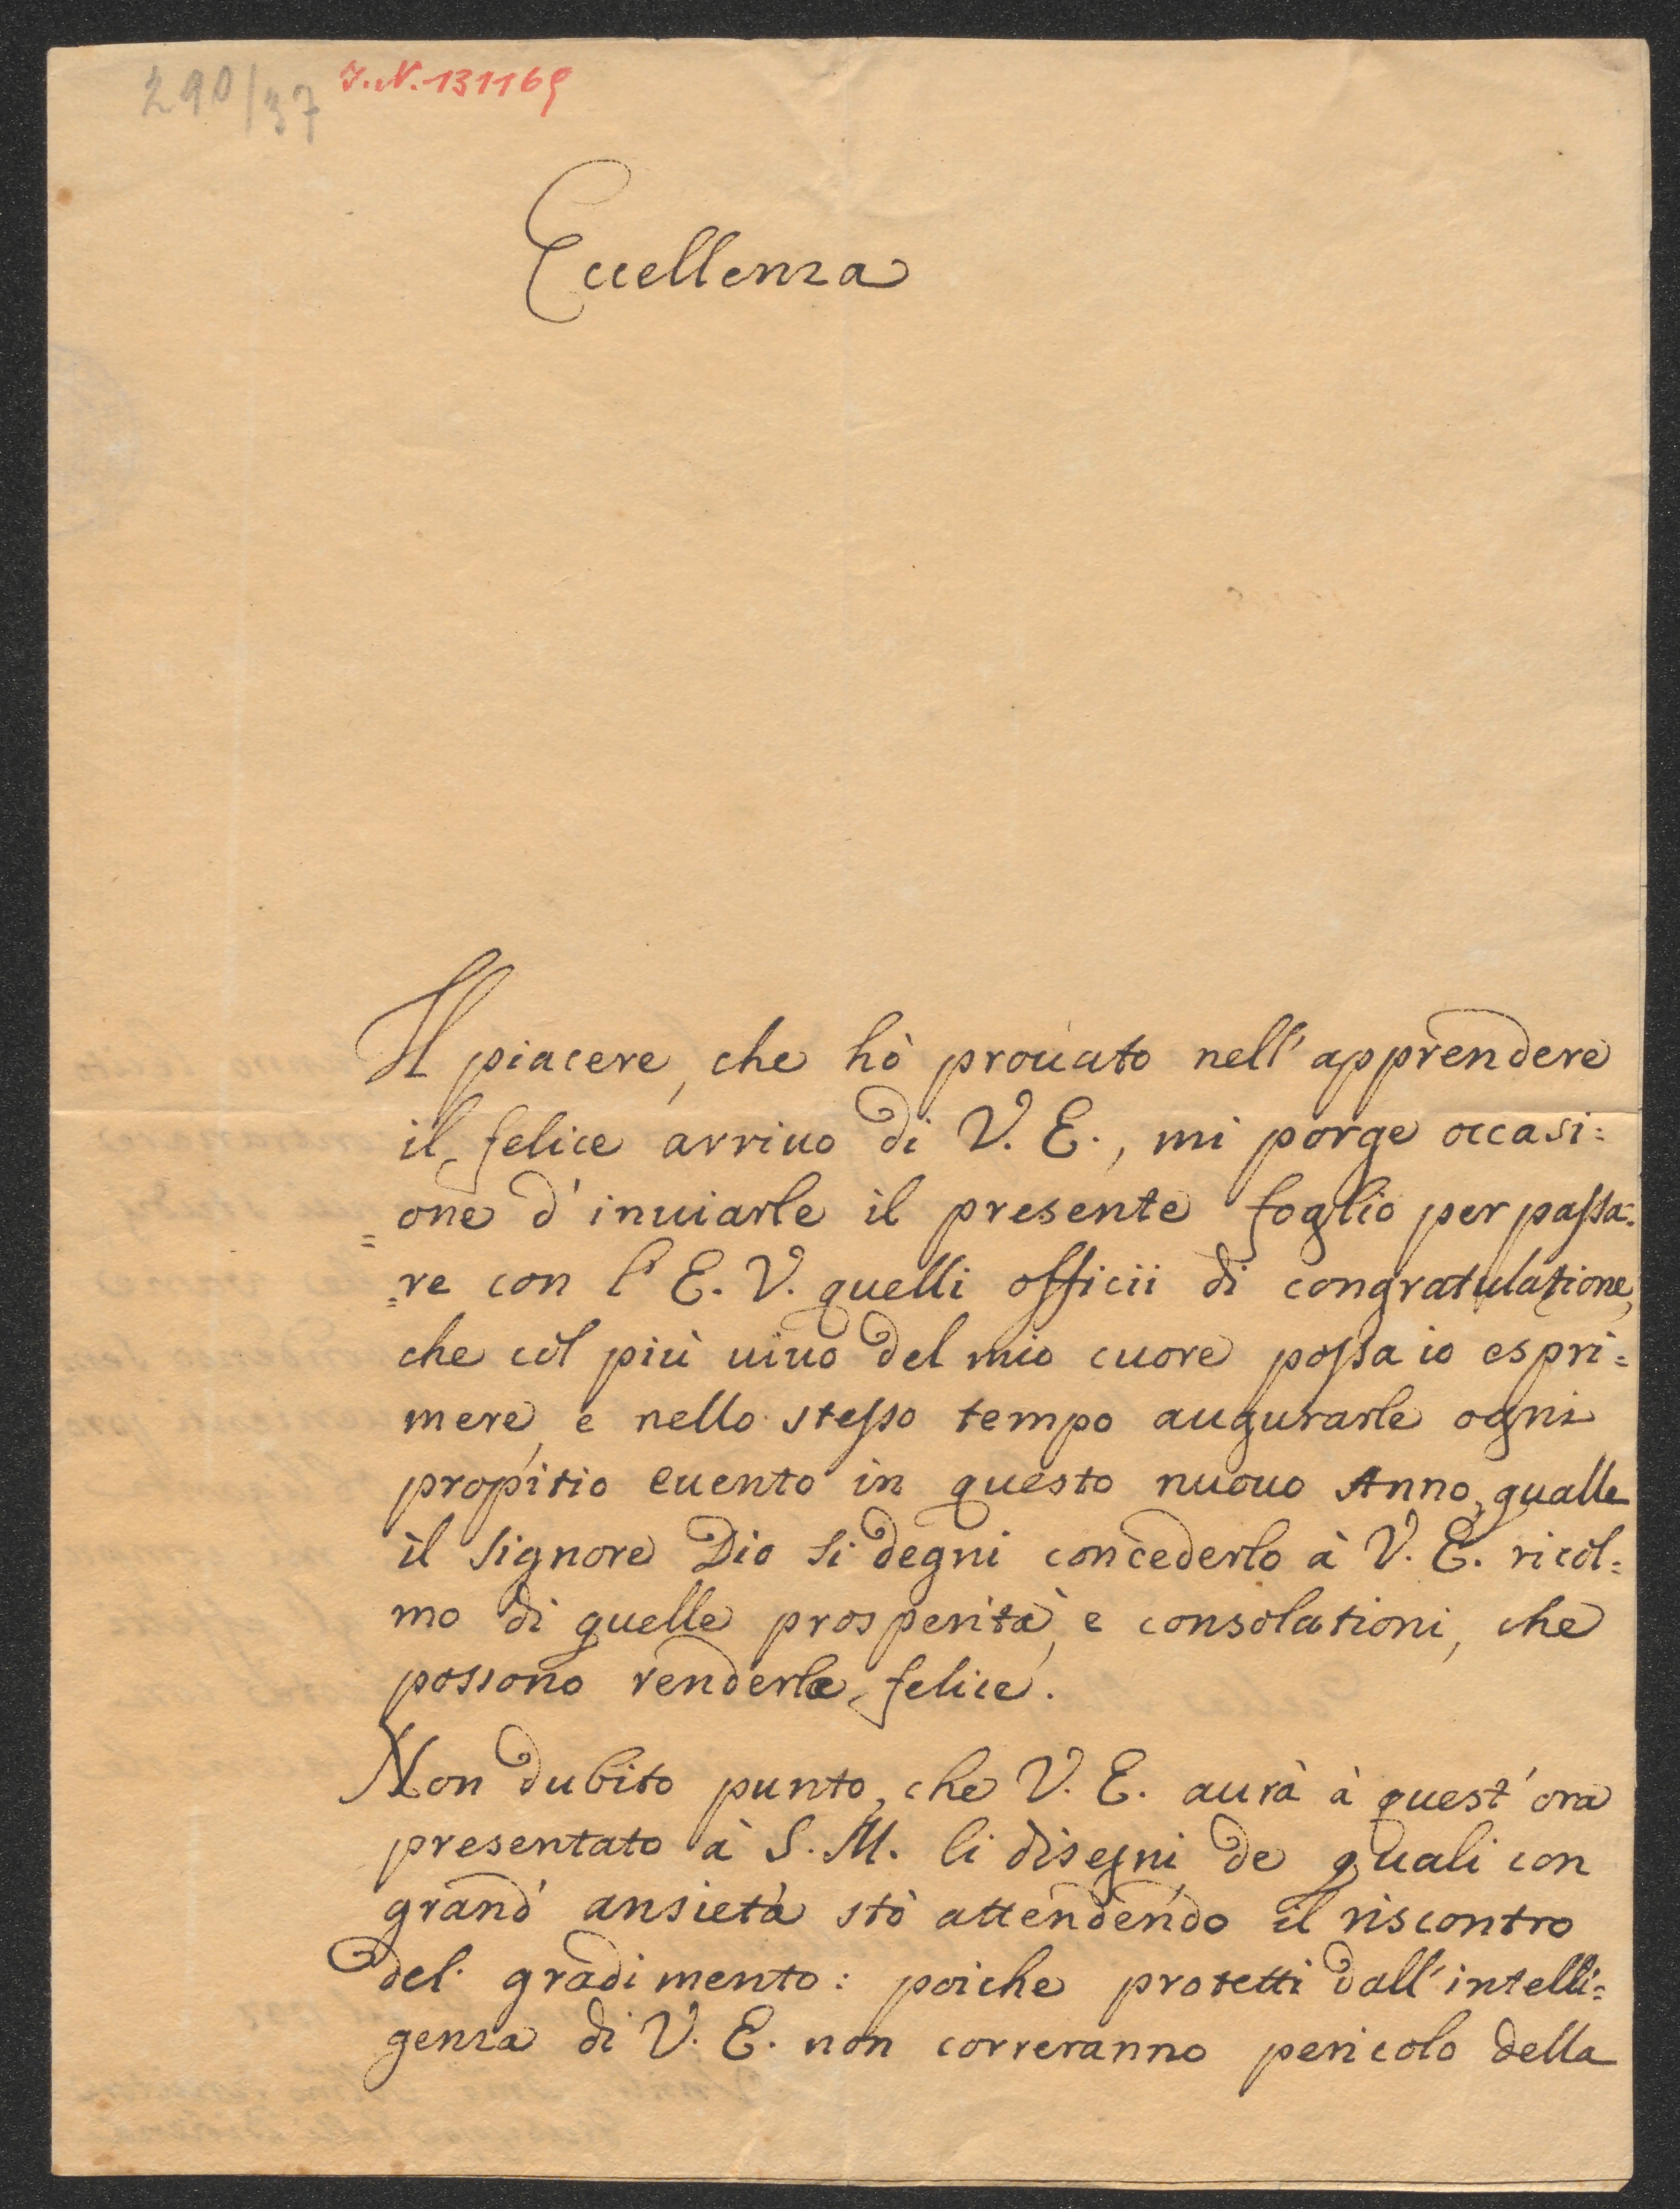 290/37 I.N. 131169
Eccellenza
Il piacere, che hò prouato nell' apprendere
il felice arriuo di V. E., mi porge occasi=
=one d' inuiarle il presente foglio per passa=
=re con l' E. V. quelli officii di congratulatione,
che còl più uiuo del mio cuore possa io espri=
mere, e nello stesso tempo augurarle ogni
propitio euento in questo nuouo Anno, qualle
il Signore Dio si degni concederlo à V. E. ricòl=
mo di quelle prosperità, e consolationi, che
possono renderla felice.
Non dubito punto, che V. E. aurà à quest' ora
presentato à S. M. li disegni, de quali con
grand' ansietà stò attendendo il riscontro
del gradimento: poiche protetti dall' intelli=
genza di V. E. non correranno pericolo della